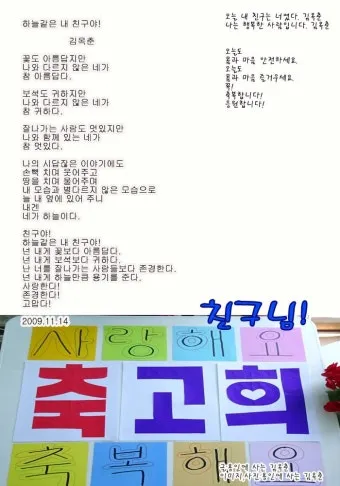 하늘같은 내 친구야!
김옥춘
꽃도 아름답지만
나와 다르지 않은 네가
참 아름답다.
보석도 귀하지만
나와 다르지 않은 네가
참 귀하다.
잘나가는 사람도 멋있지만
나와 함께 있는 네가
참 멋있다.
나의 시답잖은 이야기에도
손뼉 치며 웃어주고
땅을 치며 울어주며
내 모습과 별다르지 않은 모습으로
늘 내 옆에 있어 주니
내겐
네가 하늘이다.
친구야!
하늘같은 내 친구야!
넌 내게 꽃보다 아름답다.
넌 내게 보석보다 귀하다.
난 너를 잘나가는 사람들보다 존경한다.
넌 내게 하늘만큼 용기를 준다.
사랑한다!
존경한다!
고맙다!
2009.11.14
오늘 내 친구는 너였다. 김옥춘
나는 행복한 사람입니다. 김옥춘
오늘도
몸과 마음 안전하세요.
오늘도
몸과 마음 즐거우세요.
꼭!
축복합니다!
응원합니다!
친구님!
사랑해요
축고희
축복해요
글 용인에 사는 김옥춘
이미지사진 용인에 사는 김옥춘